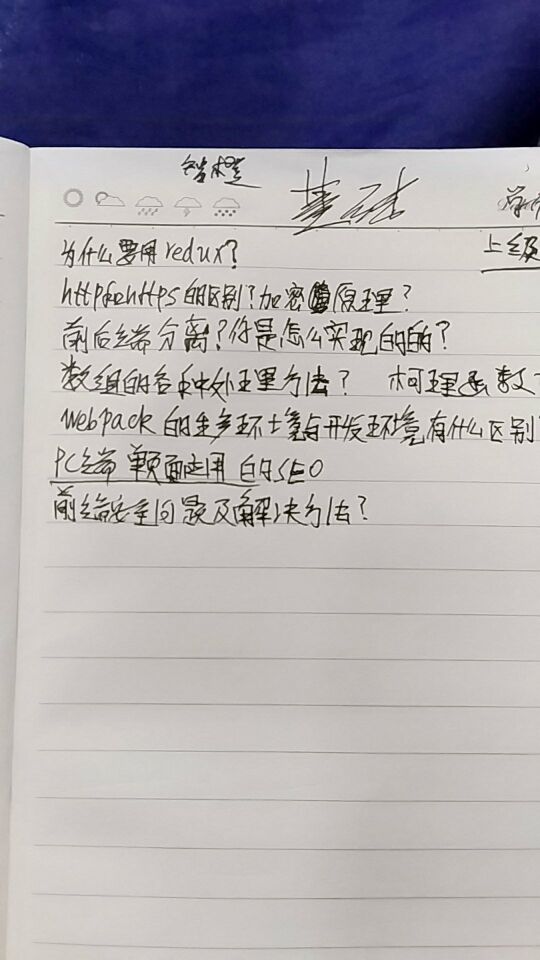 基础
上级
为什么要用redux?
http和https的区别?加密原理?
前后端分离?你是怎么实现的的?
数组的各种处理方法? 柯理函数
webpack的生产环境与开发环境有什么区别?
PC端 单页面应用 的SEO
前端安全问题及解决方法?